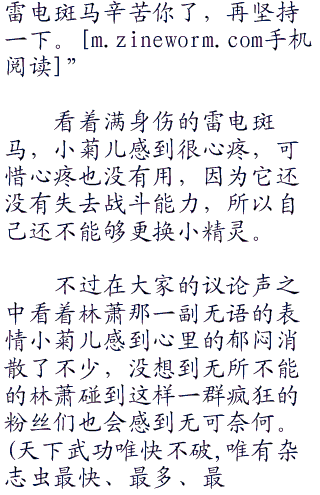 雷电斑马辛苦你了，再坚持
一下。[m.zineworm.com手机
阅读]”
看着满身伤的雷电斑
马，小菊儿感到很心疼，可
惜心疼也没有用，因为它还
没有失去战斗能力，所以自
己还不能够更换小精灵。
不过在大家的议论声之
中看着林萧那一副无语的表
情小菊儿感到心里的郁闷消
散了不少，没想到无所不能
的林萧碰到这样一群疯狂的
粉丝们也会感到无可奈何。
(天下武功唯快不破,唯有杂
志虫最快、最多、最